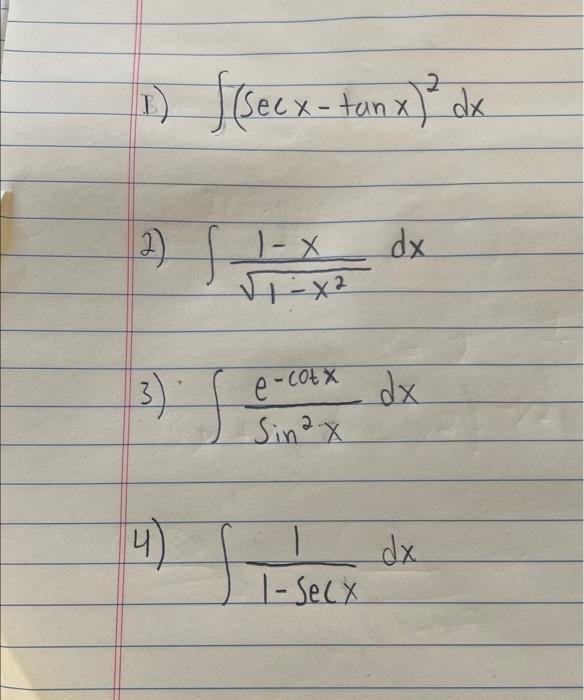 1) ∫(Sec x - tan x)² dx
2) ∫ (1 - x)/√(1 - x²) dx
3) ∫ e^(-cot x)/Sin² x dx
4) ∫ 1/(1 - Sec x) dx